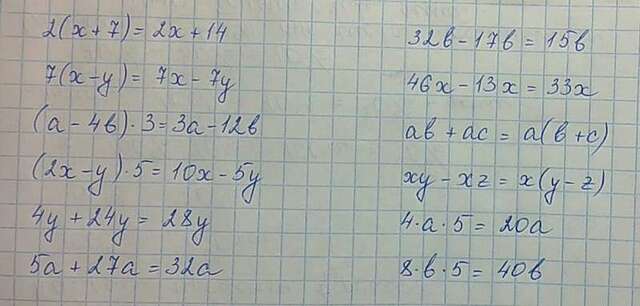 2(x+7)=2x+14
7(x-y)=7x-7y
(a-4b)·3=3a-12b
(2x-y)·5=10x-5y
4y+24y=28y
5a+27a=32a
32b-17b=15b
46x-13x=33x
ab+ac=a(b+c)
xy-xz=x(y-z)
4·a·5=20a
8·b·5=40b